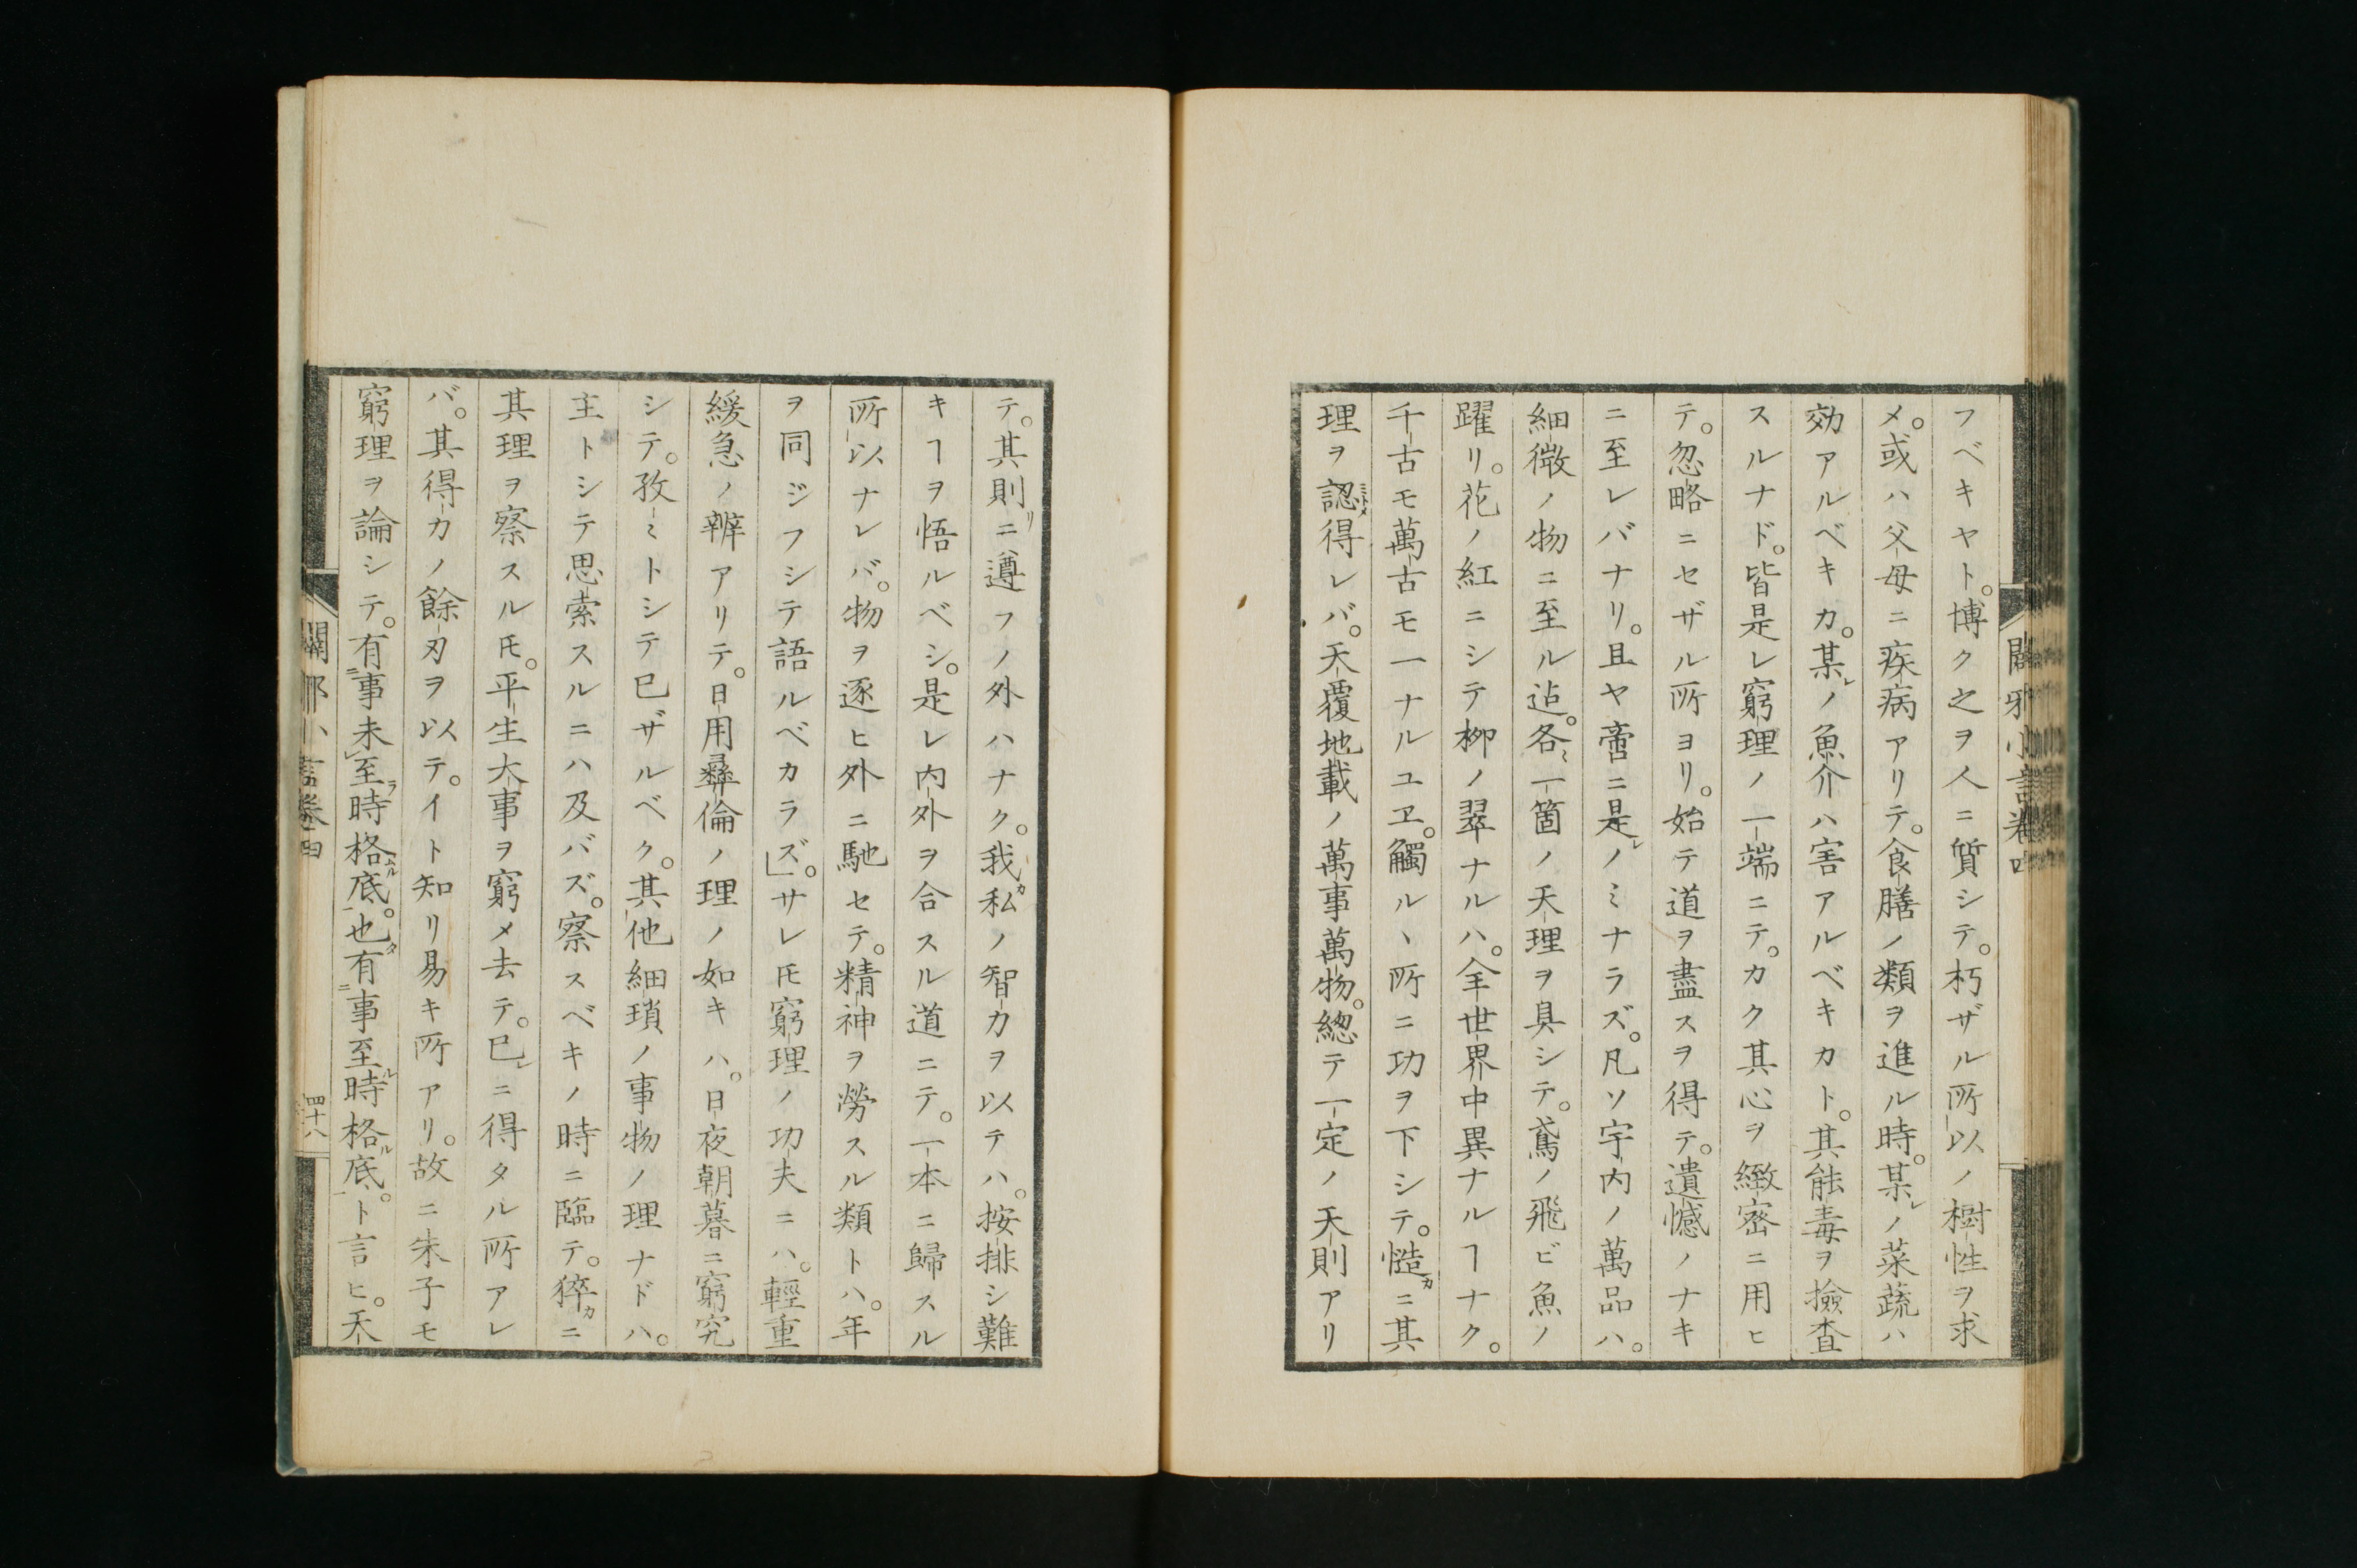 フベキヤト。博ク之ヲ人ニ質シテ。朽ザル所以ノ樹性ヲ求
メ。或ハ父母ニ疾病アリテ。食膳ノ類ヲ進ル時。某レノ菜蔬ハ
効アルベキカ。某レノ魚介ハ害アルベキカト。其能毒ヲ撿査
スルナド。皆是レ窮理ノ一端ニテ。カク其心ヲ緻密ニ用ヒ
テ。忽略ニセザル所ヨリ。始テ道ヲ盡スヲ得テ。遺憾ノナキ
ニ至レバナリ。且ヤ啻ニ是レノミナラズ。凡ソ宇内ノ萬品ハ。
細微ノ物ニ至ル迠。各〻一箇ノ天理ヲ具シテ。鳶ノ飛ビ魚ノ
躍リ。花ノ紅ニシテ柳ノ翠ナルハ。全世界中異ナルヿナク。
千古モ萬古モ一ナルユヱ。觸ルヽ所ニ功ヲ下シテ。慥カニ其
理ヲ認得レバ。天覆地載ノ萬事萬物。總テ一定ノ天則アリ
闢邪小言卷四
テ。其則リニ遵フノ外ハナク。我私カノ智力ヲ以テハ。按排シ難
キヿヲ悟ルベシ。是レ内外ヲ合スル道ニテ。一本ニ歸スル
所以ナレバ。物ヲ逐ヒ外ニ馳セテ。精神ヲ勞スル類トハ。年
ヲ同ジフシテ語ルベカラズ」。サレ𪜈窮理ノ功夫ニハ。輕重
緩急ノ辨アリテ。日用彝倫ノ理ノ如キハ。日夜朝暮ニ窮究
シテ。孜〻トシテ已ザルベク。其他細瑣ノ事物ノ理ナドハ。
主トシテ思索スルニハ及バズ。察スベキノ時ニ臨テ。猝カニ
其理ヲ察スル𪜈。平生大事ヲ窮メ去テ。已レニ得タル所アレ
バ。其得力ノ餘刃ヲ以テ。イト知リ易キ所アリ。故ニ朱子モ
窮理ヲ論シテ。有事未至時格底。也有事至時格底。ト言ヒ。天
闢邪小言卷四
四十八